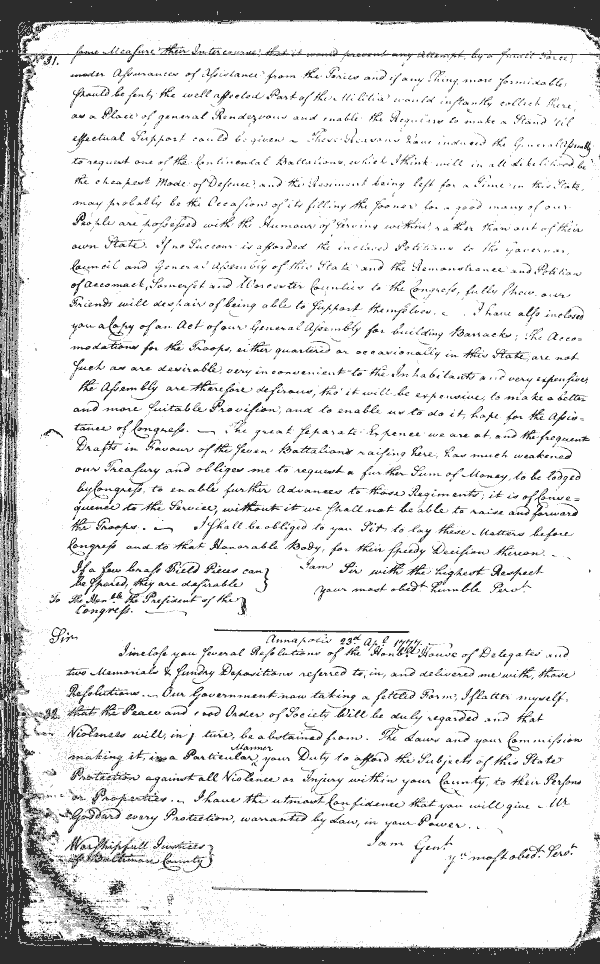 31.
some Measure their Intercourse, that it would prevent any Attempt, by a small Force,
under Assurances of Assistance from the Tories and if any thing more formidable
should be sent, the well affected Part of the Militia would instantly collect there,
as a Place of general Rendezvous and enable the Regulars to make a Stand 'til
effectual Support could be given – These Reasons have induced the General Assembly
to request one of the Continental Battalions, which I think will in all likelihood be
the cheapest Mode of Defence, and the Regiment being left for a Time in this State
may probably be the Occasion of its filling the sooner for a good many of our
People are possessed with the Humour of Serving within rather than out of their
own State. If no Succour is afforded the inclosed Petitions to the Governor,
Council and General Assembly of this State and the Remonstrance and Petition
of Accomack, Somerset and Worcester Counties to the Congress, fully shew, our
Friends will despair of being able to support themselves. – I have also inclosed
you a Copy of an Act of our General Assembly for building Barracks; the Acco-
modations for the Troops, either quartered or occasionally in this State, are not
such as are desirable, very inconvenient to the Inhabitants and very expensive,
the Assembly are therefore desirous, tho' it will be expensive, to make a better
and more suitable Provision, and to enable us to do it, hope for the Assis-
tance of Congress. — The great separate Expence we are at, and the frequent
Drafts in Favour of the seven Battalions raising here, has much weakened
our Treasury and obliges me to request a further Sum of Money, to be lodged
by Congress, to enable further Advances to those Regiments, it is of Conse-
quence to the Service, without it we shall not be able to raise and forward
the Troops. — I shall be obliged to you Sir, to lay these Matters before
Congress and to that Honorable Body, for their speedy Decision thereon. –
If a few brass Field Pieces can
be spared, they are desirable
I am Sir with the highest Respect
your most obedt. humble Servt.
To the Honble. the President of the
Congress. —
Annapolis 23d. Apl. 1777.
Sir
I inclose you several Resolutions of the Honble. House of Delegates and
two Memorials & sundry Depositions referred to, in, and delivered me with, those
Resolutions. – Our Government now taking a settled Form, I flatter myself,
32.
that the Peace and good Order of Society will be duly regarded and that
Violences will, in ture, be abstained from. The Laws and your Commission
making it, in a Particular Manner, your Duty to afford the Subjects of this State
Protection against all Violence or Injury within your County, to their Persons
or Properties. – I have the utmost Confidence that you will give Mr
Goddard every Protection, warranted by Law, in your Power. –
I am Gent.
yr. most obedt. Servt.
Worshipfull Justices
of Baltimore County